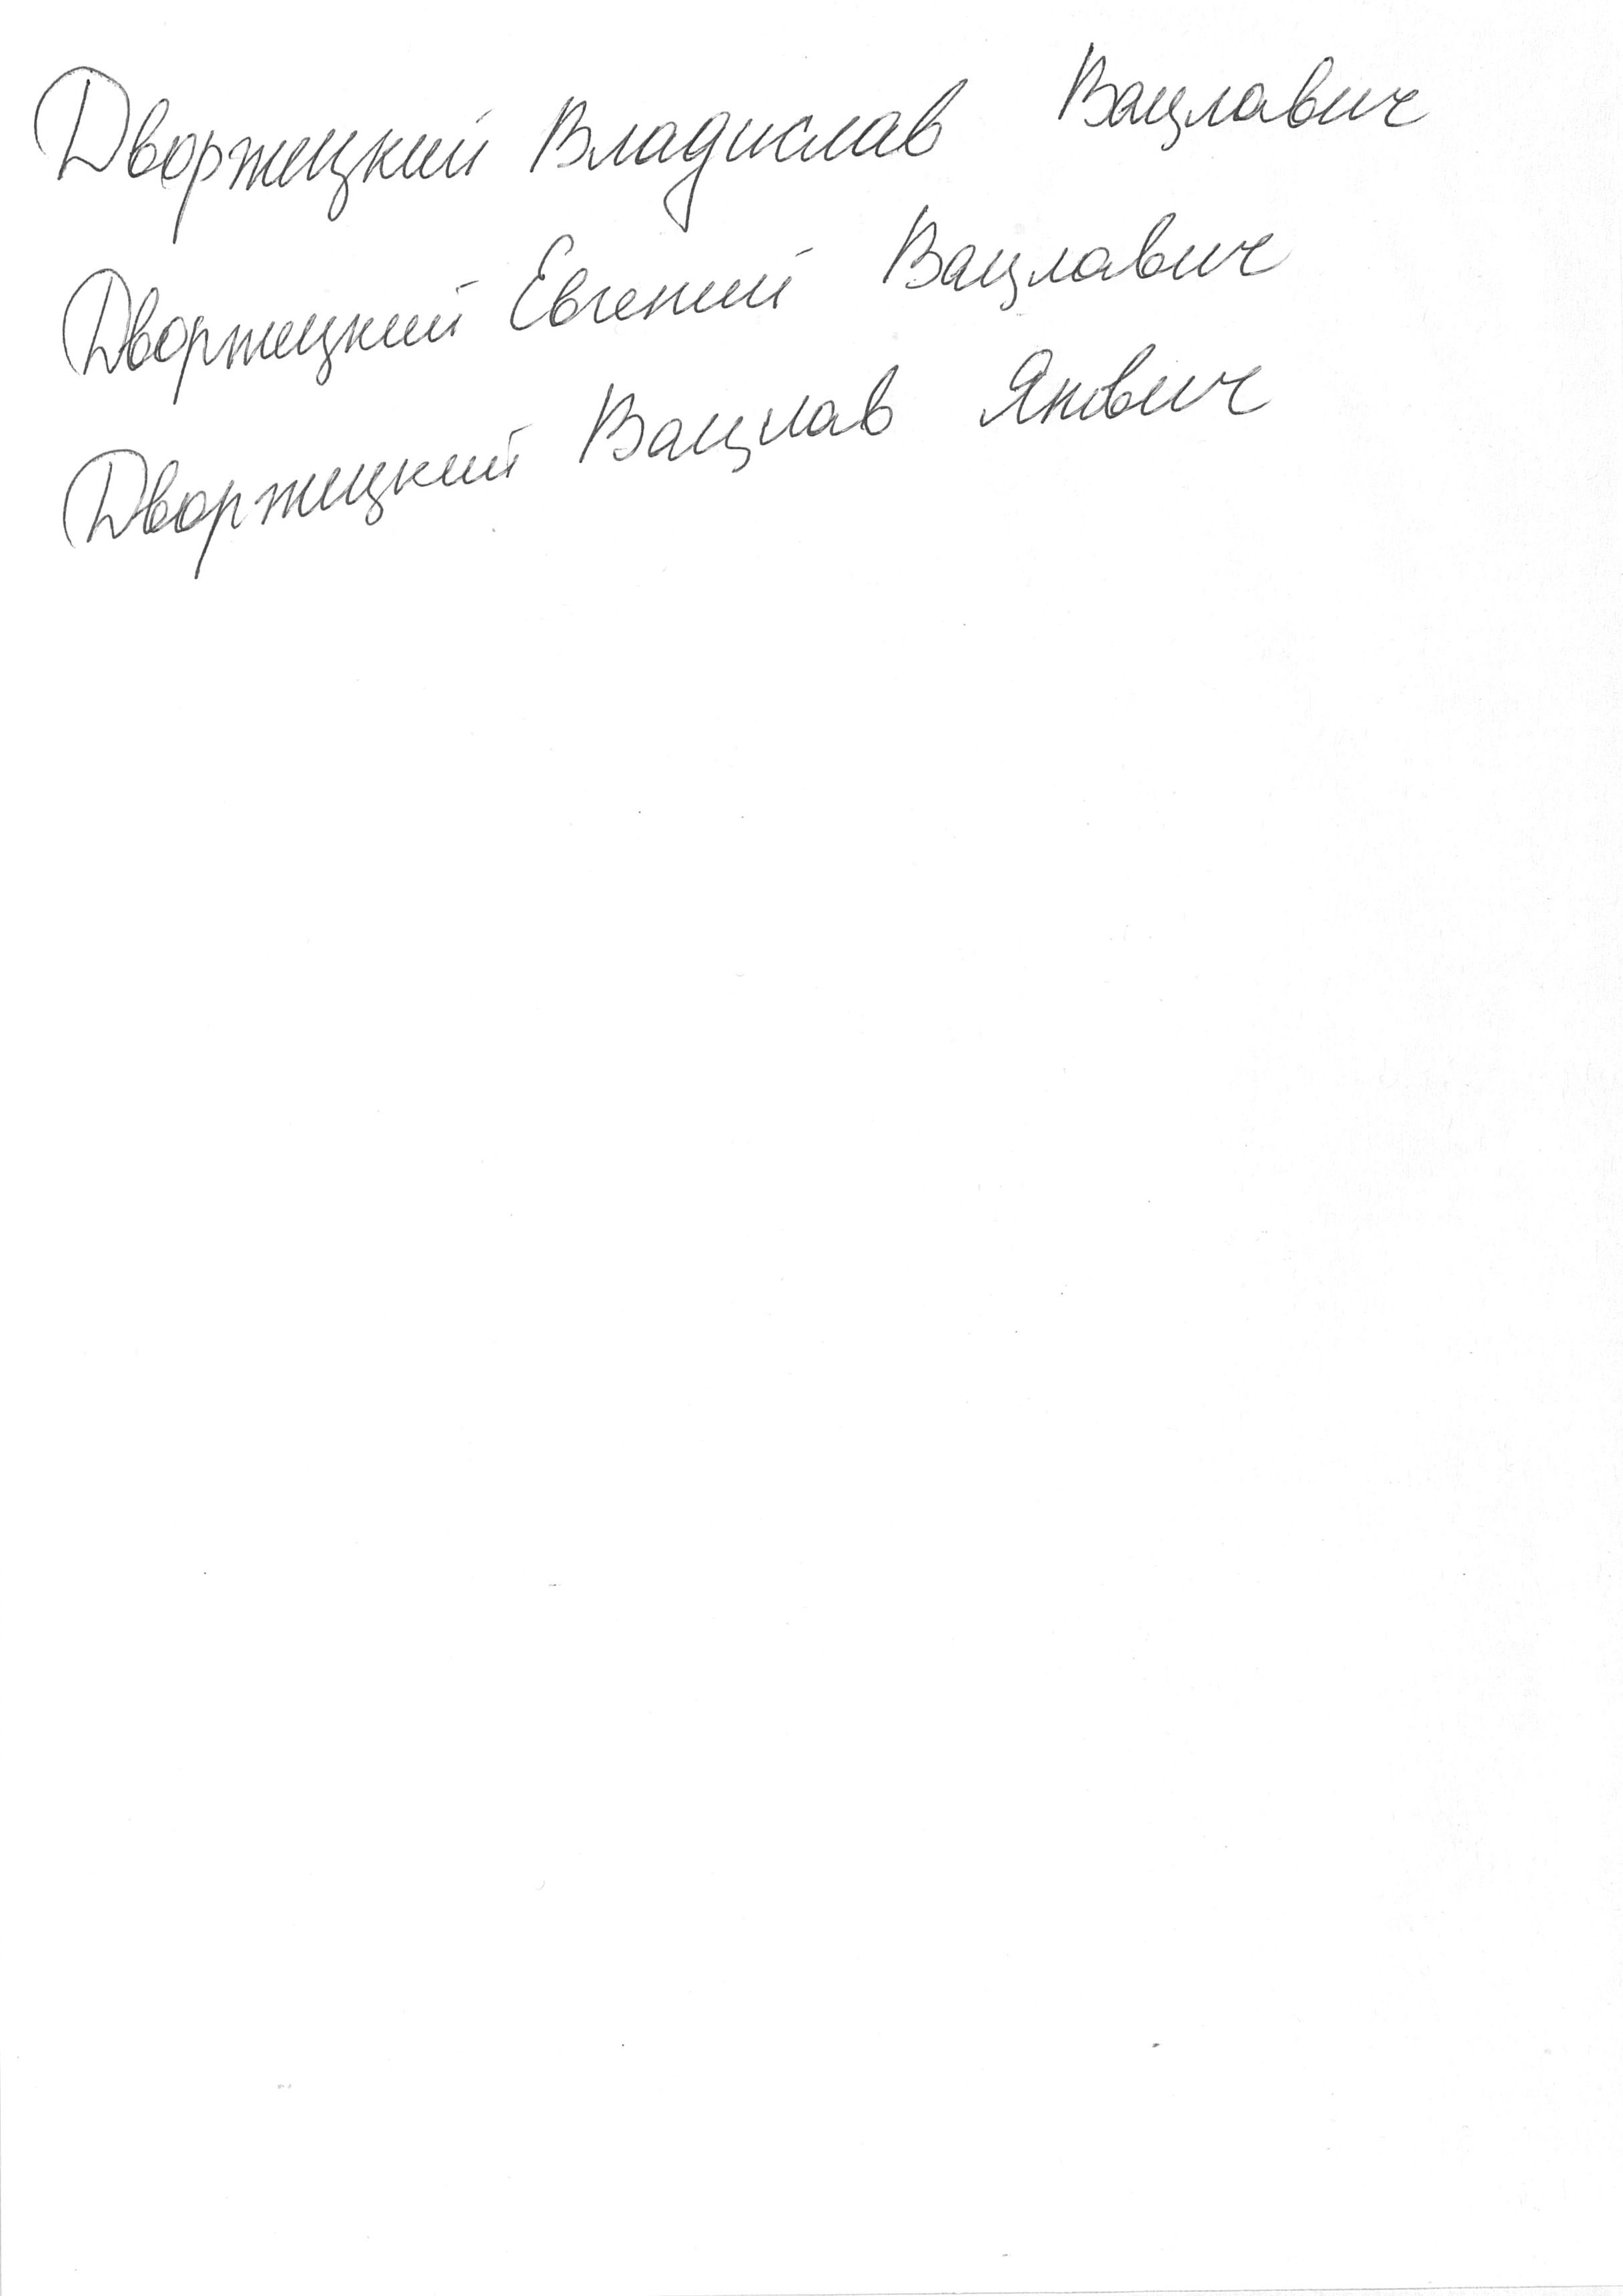 Дворжецкий Владислав Вацлавич
Дворжецкий Евгений Вацлавич
Дворжецкий Вацлав Янович